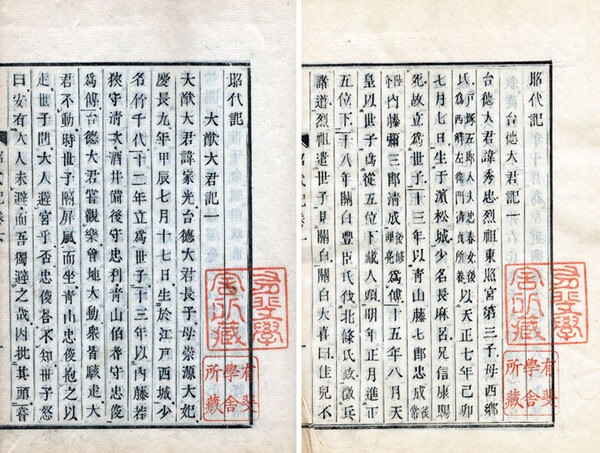 昭代記
台德大君記一
台德大君諱秀忠烈祖東照宮第三子母西鄉
氏以天正七年己卯
七月七日生于濱松城少名長麻呂兄信康賜
死故立爲世子十三年以青山藤七郎忠成
內藤彌三郎清成爲傅十五年八月天
皇以世子爲從五位下藏人頭明年正月進正
五位下十八年關白豐臣氏伐北條氏政徵兵
諸道烈祖遣世子見關白關白大喜曰佳兒不
昭代記卷一
有斐學舍所藏
有斐學舍所藏
昭代記
大猷大君記一
大猷大君諱家光台德大君長子母崇源大妃
慶長九年甲辰七月十七日生於江戶西城少
名竹千代十二年立爲世子十三年以內藤若
狹守清次酒井備後守忠利青山伯耆守忠俊
爲傅台德大君嘗觀樂會地大動衆皆驟走大
君不動時世子隔屏風而坐青山忠俊抱之以
走世子問大人避宮乎否忠俊答不知世子怒
曰安有大人未避而吾獨避之哉因批其頭
昭代記卷六
有斐學舍所藏
有斐學舍所藏